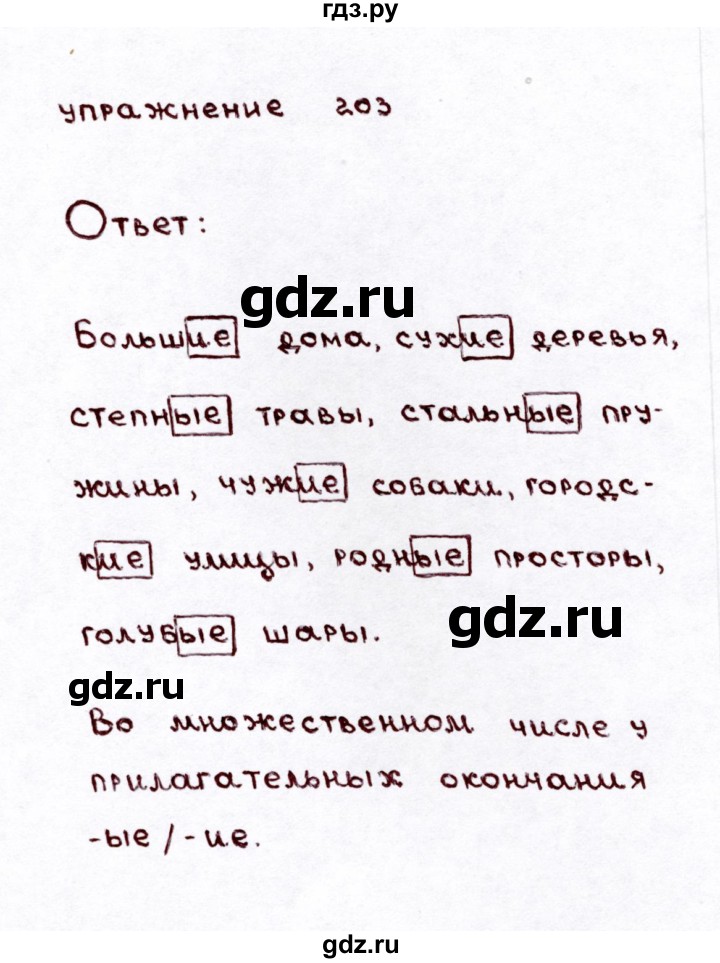 гдз.ру
упражнение 203
Ответ:
gdz.ru
Большие дома, сухие деревья,
степные травы, стальные пру-
жины, чужие собаки, городс-
кие улицы, родные просторы,
gdz.ru
голубые шары.
gdz.ru
Во множественном числе у
прилагательных окончания
-ые/-ие.
gdz.ru